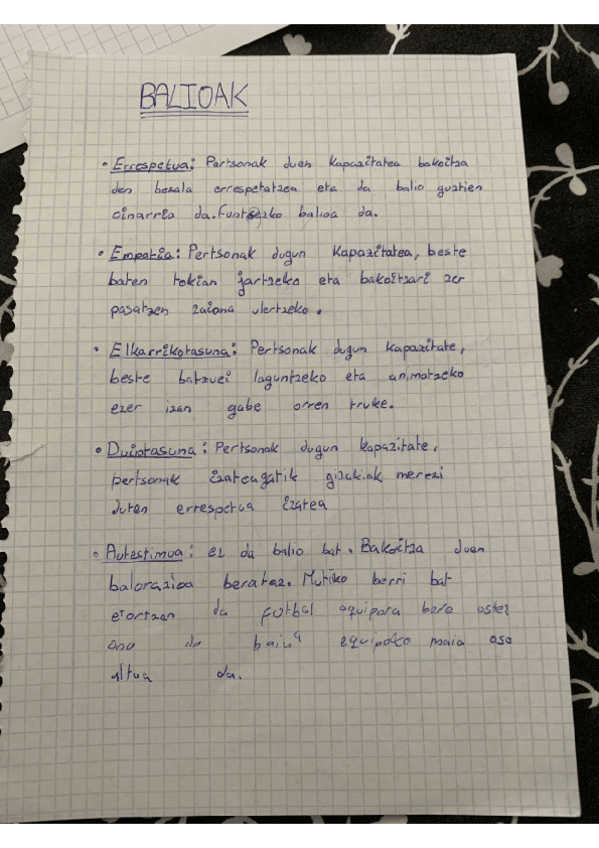 BALIOAK
• Errespetua: Pertsonak duen kapazitatea bakoitza
den bezala errespetatzea eta da balio guztien
oinarria da. Funtsezko balioa da.
• Empatia: Pertsonak dugun kapazitatea, beste
baten tokian jartzeko eta bakoitzari zer
pasatzen zaiona ulertzeko.
• Elkarrikotasuna: Pertsonak dugun kapazitate,
beste batzuei laguntzeko eta animatzeko
ezer izan gabe orren truke.
• Duintasuna: Pertsonak dugun kapazitate,
pertsonak izateagatik gizakiak merezi
duten errespetua izatea
• Autestimua: ez da balio bat. Bakoitza duen
balorazioa berataz. Mutiko berri bat
etortzen da futbol equipora bera oster
ona da baina equipoko maia oso
altua da.